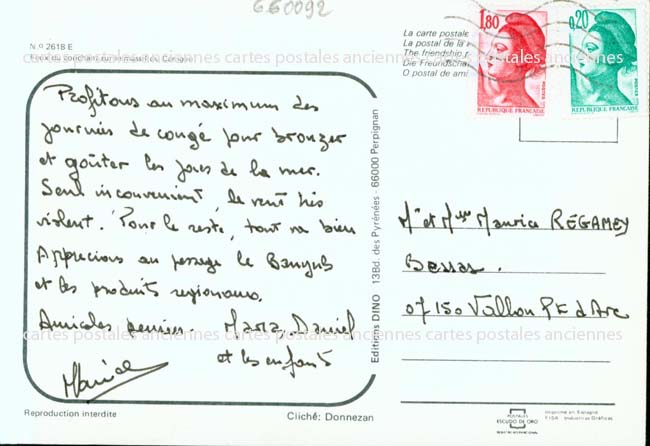 660092
N.º 2618 E
Feux du couchant sur le massif du Canigou
La carte postale
La postal de la
The friendship p
Die Freundscha
O postal de ami
1,80
REPUBLIQUE FRANÇAISE
0,20
REPUBLIQUE FRANÇAISE
cartes postales anciennes cartes postales anciennes cartes postales anciennes
Profitons au maximum des
journées de congé pour bronzer
et goûter les joies de la mer.
Seul inconvenient, le vent très
violent. Pour le reste, tout va bien
Apprecions au passage le Banyuls
et les produits regionaux.
Amicales pensées. Maria, Daniel
et les enfants
Editions DINO 13Bd. des Pyrénées - 66000 Perpignan
Mr et Mme Maurice RÉGAMEY
Bessas.
07150 Vallon Pt d'Arc
cartes postales anciennes cartes postales anciennes cartes postales anciennes
Reproduction interdite
Cliché: Donnezan
POSTALES
ESCUDO DE ORO
Imprimé en Espagne
FISA - Industrias Gráficas